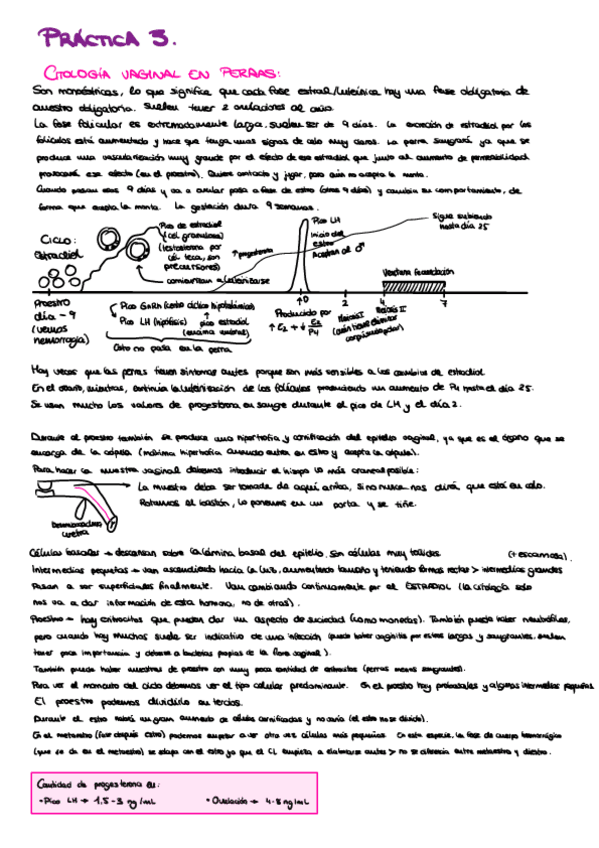 PRÁCTICA 3.
CITOLOGÍA VAGINAL EN PERRAS:
Son monoéstricas, lo que significa que cada fase estral/luteínica hay una fase obligatoria de
anestro obligatoria. Suelen tener 2 ovulaciones al año.
La fase folicular es extremadamente larga, suelen ser de 9 días. La secreción de estradiol por los
folículos está aumentando y hace que tenga unos signos de celo muy claros. La perra sangrará ya que se
produce una vascularización muy grande por el efecto de ese estradiol que junto al aumento de permeabilidad
provocará ese efecto (en el proestro). Quiere contacto y jugar, pero aún no acepta la monta.
Cuando pasan esos 9 días y va a ovular pasa a fase de estro (otros 9 días) y cambia su comportamiento, de
forma que acepta la monta. La gestación dura 9 semanas.
CICLO:
estradiol
Pico de estradiol
(cél. granulosa)
(testosterona por
cél. teca, son
precursores)
comienzan a luteinizarse
↑ progesterona
Pico LH
Inicio del
estro
Aceptan al ♂
Sigue subiendo
hasta día 25
Ventana fecundación
Proestro
día -9
(vemos
hemorragia)
Pico GnRH (centro cíclico hipotalámico)
Pico LH (hipófisis)
pico estradiol
Esto no pasa en la perra
0
2
4
7
Producido por
↑ E2 + ↓ E2/P4
Meiosis I
Meiosis II
Hay veces que las perras tienen síntomas antes porque son más sensibles a los cambios de estradiol.
En el ovario, mientras, continúa la luteinización de los folículos produciendo un aumento de P4 hasta el día 25.
Se usan mucho los valores de progesterona en sangre durante el pico de LH y el día 2.
Durante el proestro también se produce una hipertrofia y cornificación del epitelio vaginal, ya que es el órgano que se
encarga de la cópula (máxima hipertrofia cuando entra en estro y acepta la cópula).
Para hacer la muestra vaginal debemos introducir el hisopo lo más craneal posible:
La muestra debe ser tomada de aquí arriba, si no nunca nos dirá que está en celo.
Rotamos el bastón, lo ponemos en un porta y se tiñe.
Desembocadura
uretra
Células basales → descansan sobre la lámina basal del epitelio. Son células muy teñidas (+ escamosa).
Intermedias pequeñas → van ascendiendo hacia la luz, aumentando tamaño y teniendo formas rectas > intermedias grandes
Pasan a ser superficiales finalmente. Van cambiando continuamente por el ESTRADIOL (la citología solo
nos va a dar información de esta hormona, no de otras).
Proestro → hay eritrocitos que pueden dar un aspecto de suciedad (como monedas). También puede haber neutrófilos,
pero cuando hay muchos suele ser indicativo de una infección (puede haber vaginitis por estros largos y sangrantes, suelen
tener poca importancia y deberse a bacterias propias de la flora vaginal).
También puede haber muestras de proestro con muy poca cantidad de eritrocitos (perras menos sangrantes).
Para ver el momento del ciclo debemos ver el tipo celular predominante. En el proestro hay parabasales y algunas intermedias pequeñas
El proestro podemos dividirlo en tercios.
Durante el estro habrá un gran aumento de células cornificadas y no varía (el estro no se divide).
En el metaestro (fase después estro) podemos empezar a ver otra vez células más pequeñas. En esta especie, la fase de cuerpo hemorrágico
(que se da en el metaestro) se solapa con el estro ya que el CL empieza a elaborarse antes > no se diferencia entre metaestro y diestro.
Cantidad de progesterona en:
• Pico LH → 1.5-3 ng/mL • Ovulación → 4-8 ng/mL